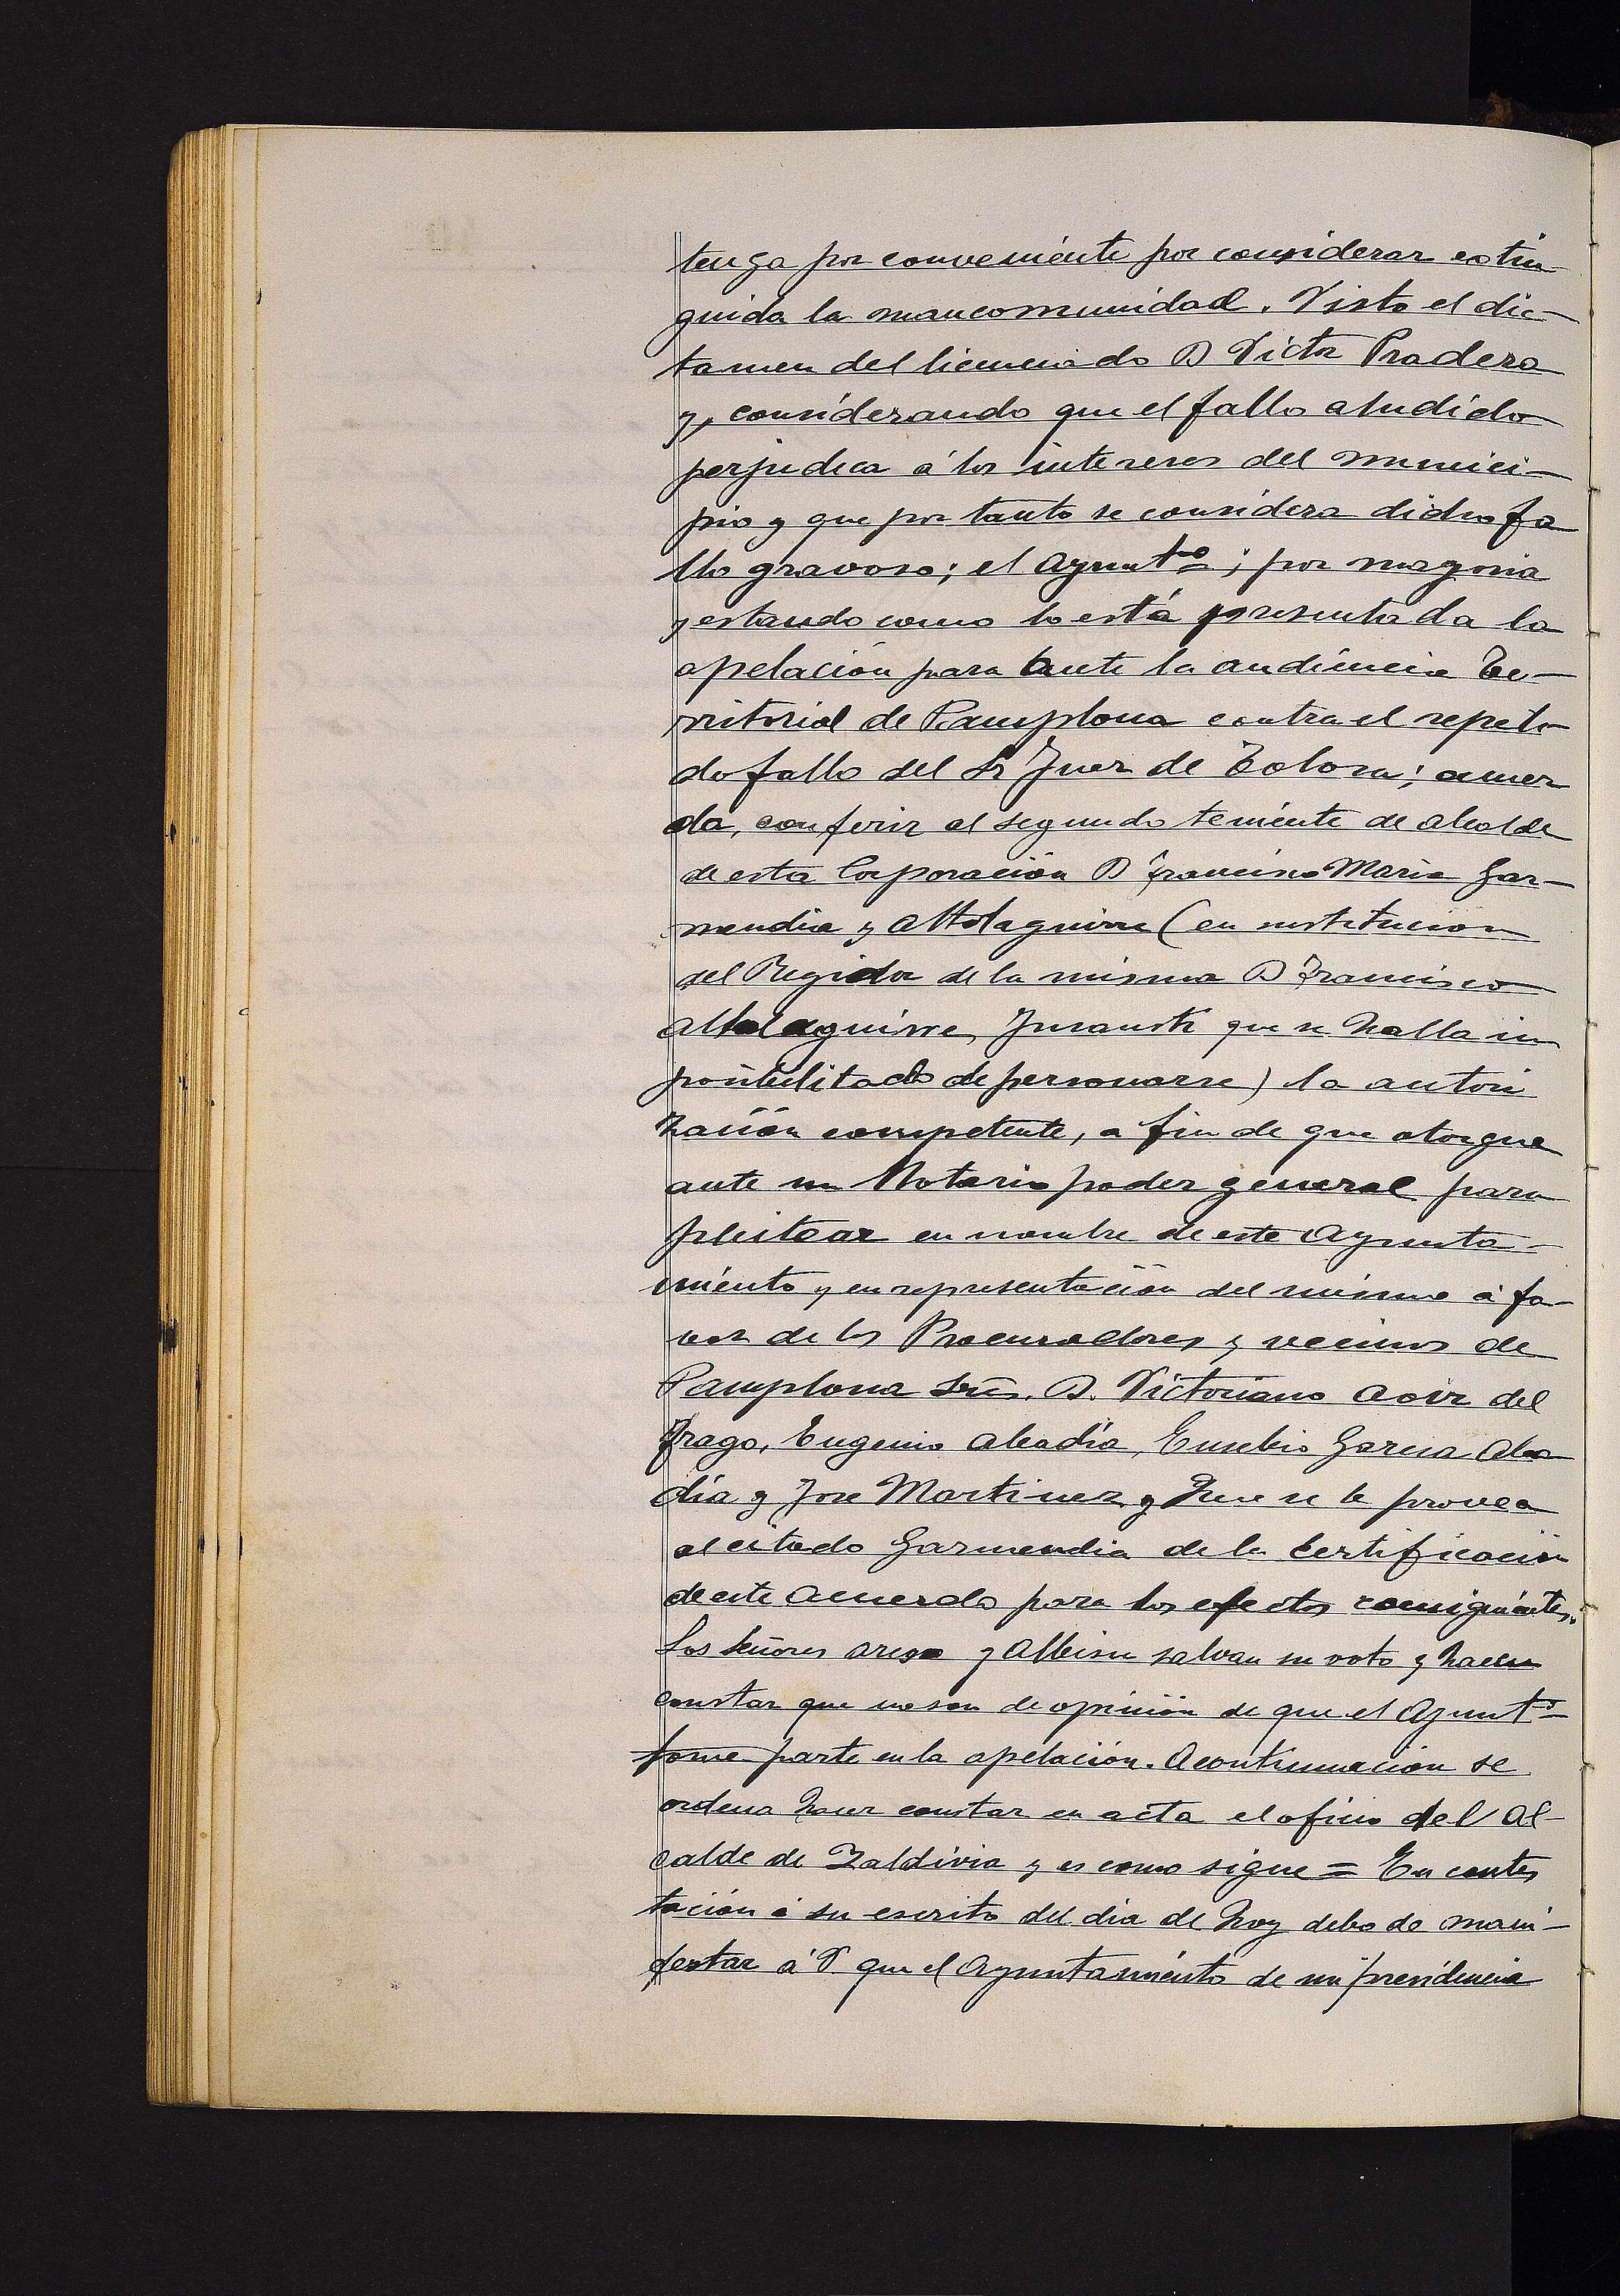 tenga por conveniente por considerar extin
guida la mancomunidad. Visto el dic-
tamen del licenciado D Victor Pradera
y, considerando que el fallo aludido
perjudica á los intereses del munici-
pio y que por tanto se considera dicho fa
llo gravoso; el Ayuntto; por mayoria
y estando como lo está presentada la
apelación para ante la audiencia Te-
rritorial de Pamplona contra el repeti
do fallo del Sr Juez de Tolosa; acuer
da, conferir al segundo teniente de alcalde
de esta Corporación D Francisco Maria Gar-
mendia y Altolaguirre (en sustitucion
del Regidor de la misma D Francisco
Altolaguirre, que se halla im
posibilitado de personarse) la autori
zación competente, a fin de que otorgue
ante un Notario poder general para
pleitear en nombre de este Ayunta-
miento y en representación del mismo á fa-
vor de los Procuradores y vecinos de
Pamplona Sres. D. Victoriano Aoiz del
Frago, Eugenio Abadía, Eusebio Garcia Aba
día y Jose Martinez y Que se le provea
al citado Garmendia de la Certificación
de este acuerdo para los efectos consiguientes.
Los Señores y Albisu salvan su voto y hacen
constar que no son de opinión de que el Ayuntto
tome parte en la apelación. Acontinuacion se
ordena hacer constar en acta el oficio del Al-
calde de Zaldivia y es como sigue = En contes
tación á su escrito del dia de hoy debo de mani-
festar á V que el Ayuntamiento de mi presidencia